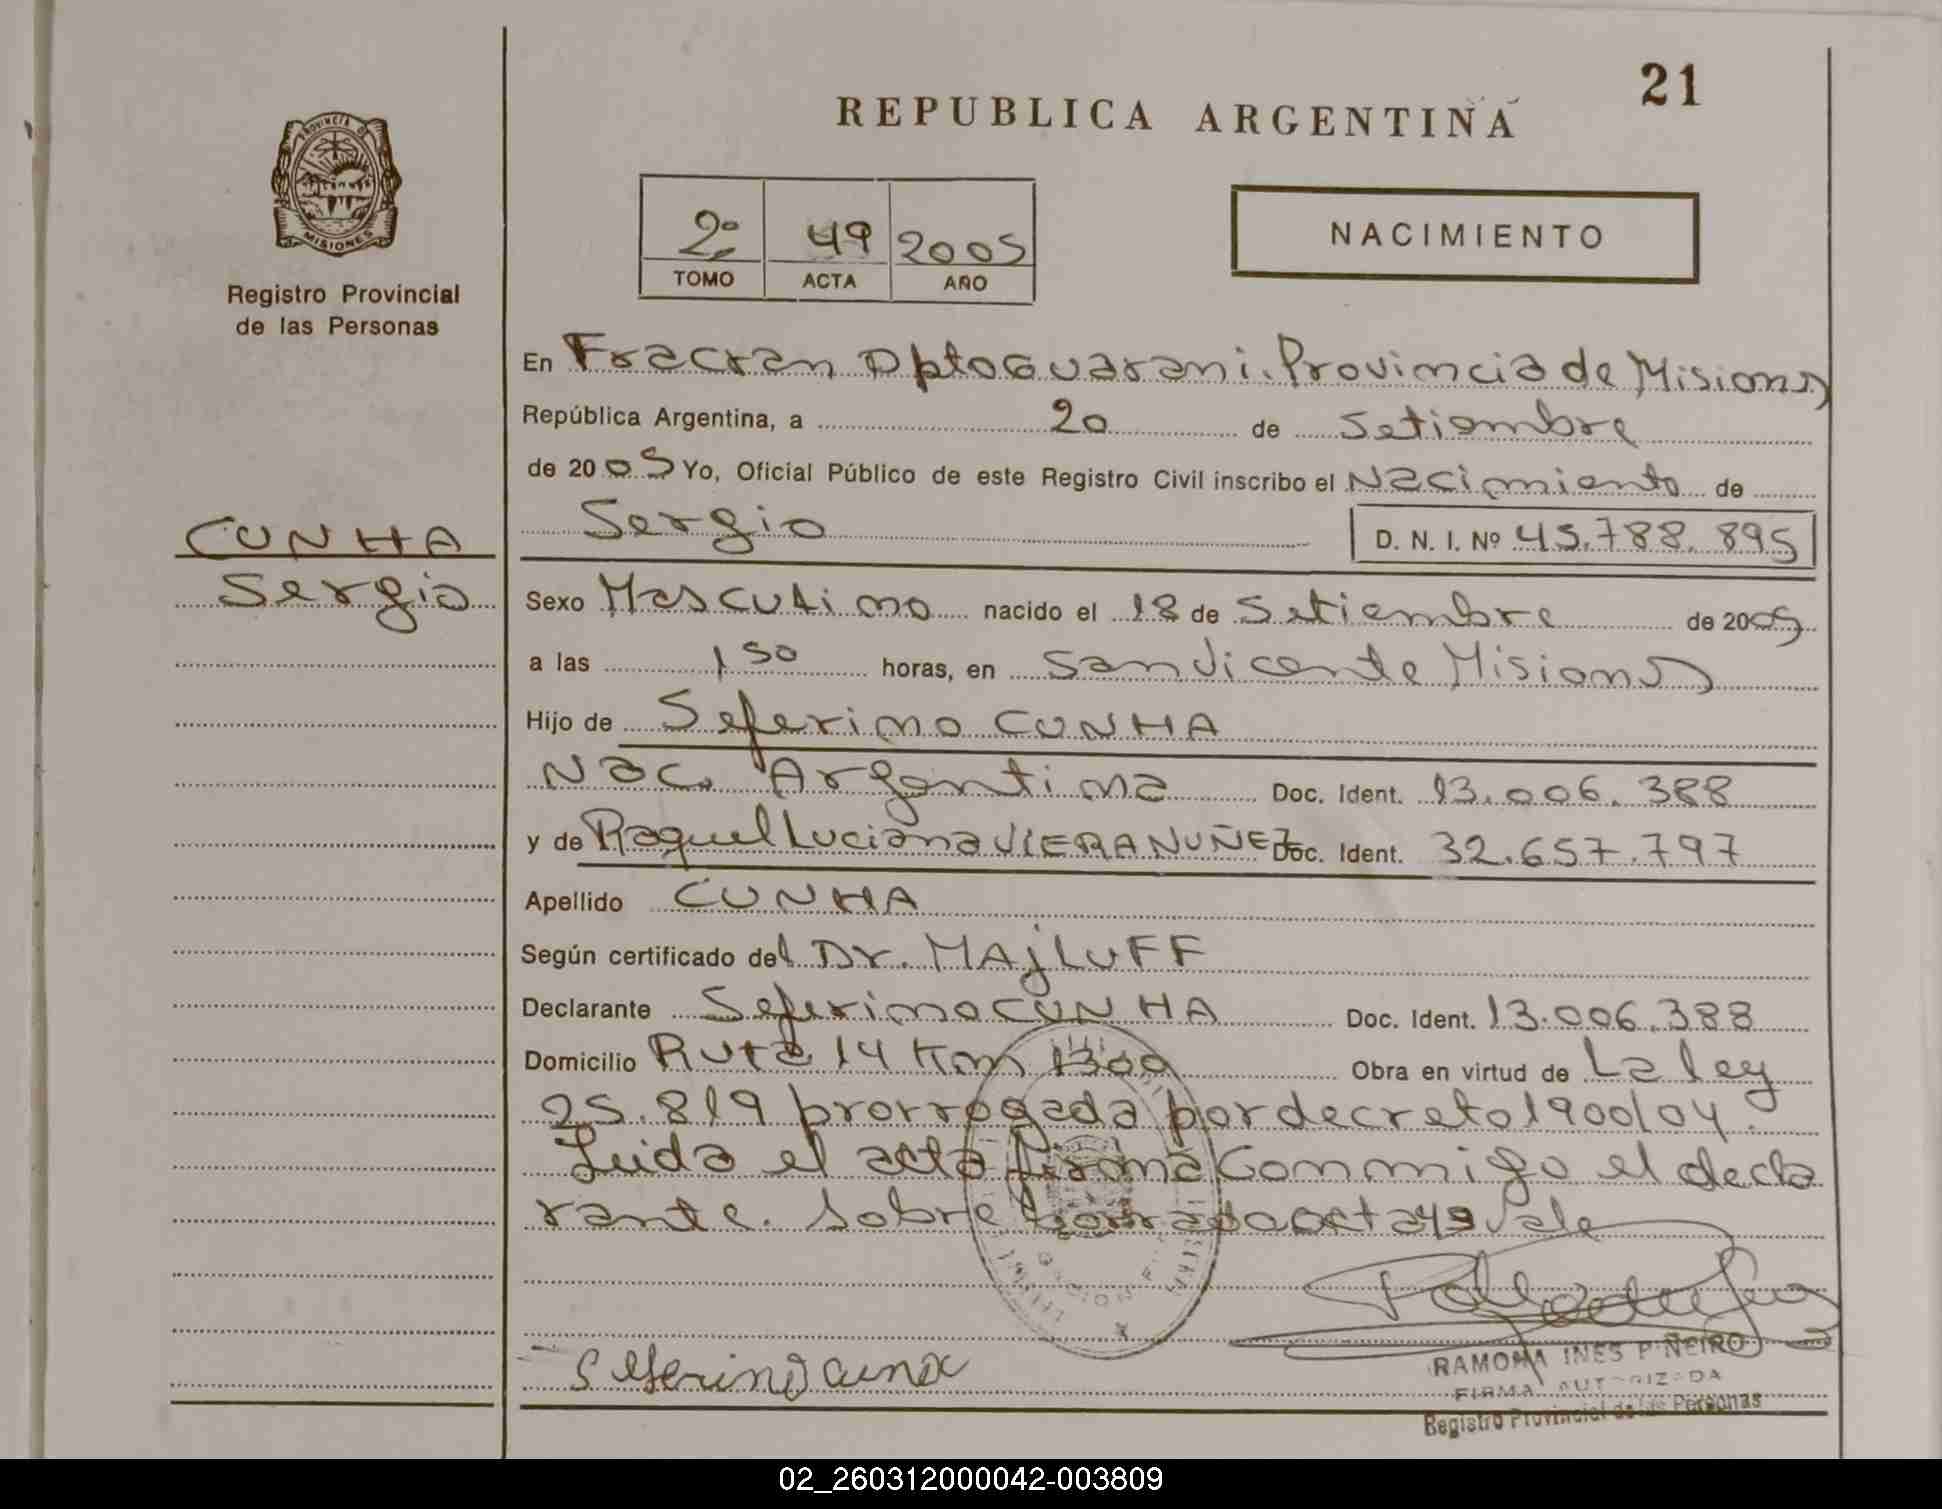 21
REPUBLICA ARGENTINA
PROVINCIA DE
MISIONES
Registro Provincial
de las Personas
2º 49 2005
TOMO ACTA AÑO
NACIMIENTO
En Fracran Dpto Guarani. Provincia de Misiones
República Argentina, a 20 de Setiembre
de 2005 Yo, Oficial Público de este Registro Civil inscribo el Nacimiento de
Sergio D. N. I. Nº 45.788.895
CUNHA
Sergio
Sexo Masculino nacido el 18 de Setiembre de 2005
a las 1 50 horas, en San Vicente Misiones
Hijo de Seferino CUNHA
Nac. Argentina Doc. Ident. 13.006.388
y de Raquel Luciana VIERA NUÑEZ Doc. Ident. 32.657.797
Apellido CUNHA
Según certificado del Dr. MAjLUFF
Declarante Seferino CUNHA Doc. Ident. 13.006.388
Domicilio Ruta 14 Km 1300 Obra en virtud de La ley
25.819 prorrogada por decreto 1900/04.
Leida el acta firma conmigo el decla
rante. Sobre borrado acta 49 Vale
Seferino cuna
RAMONA INES PIÑEIRO
FIRMA AUTORIZADA
Registro Provincial de las Personas
02_260312000042-003809